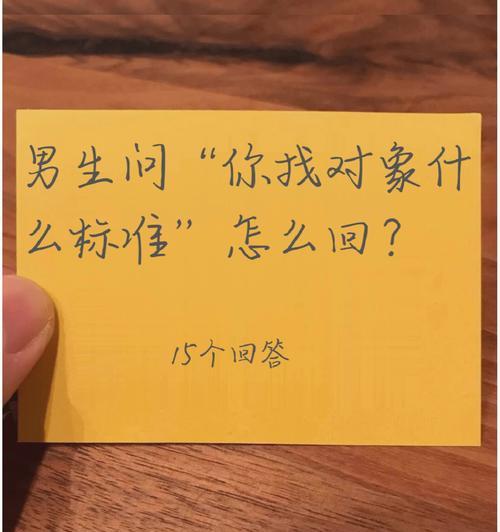 男生问“你找对象什
么标准”怎么回？
15个回答